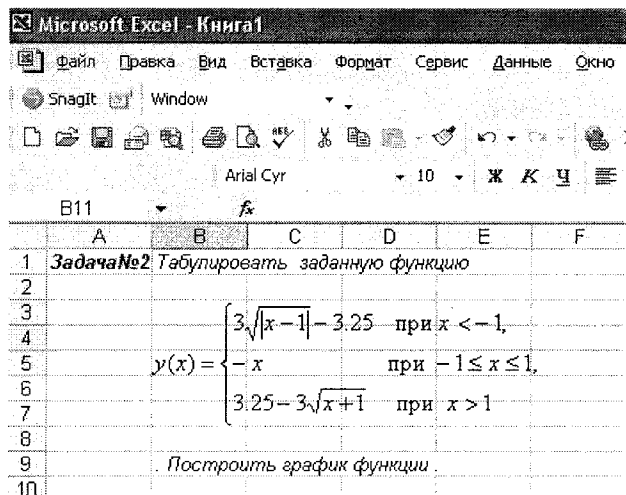 Microsoft Excel - Книга1
Файл Правка Вид Вставка Формат Сервис Данные Окно
SnagIt Window
Arial Cyr 10 Ж К Ч
B11 fx
A B C D E F
1 Задача№2 Табулировать заданную функцию
2
3
4
5
6
7
8
9
10
3√|x−1| − 3.25 при x < −1,
y(x) = { − x при −1 ≤ x ≤ 1,
3.25 − 3√x+1 при x > 1
. Построить график функции .